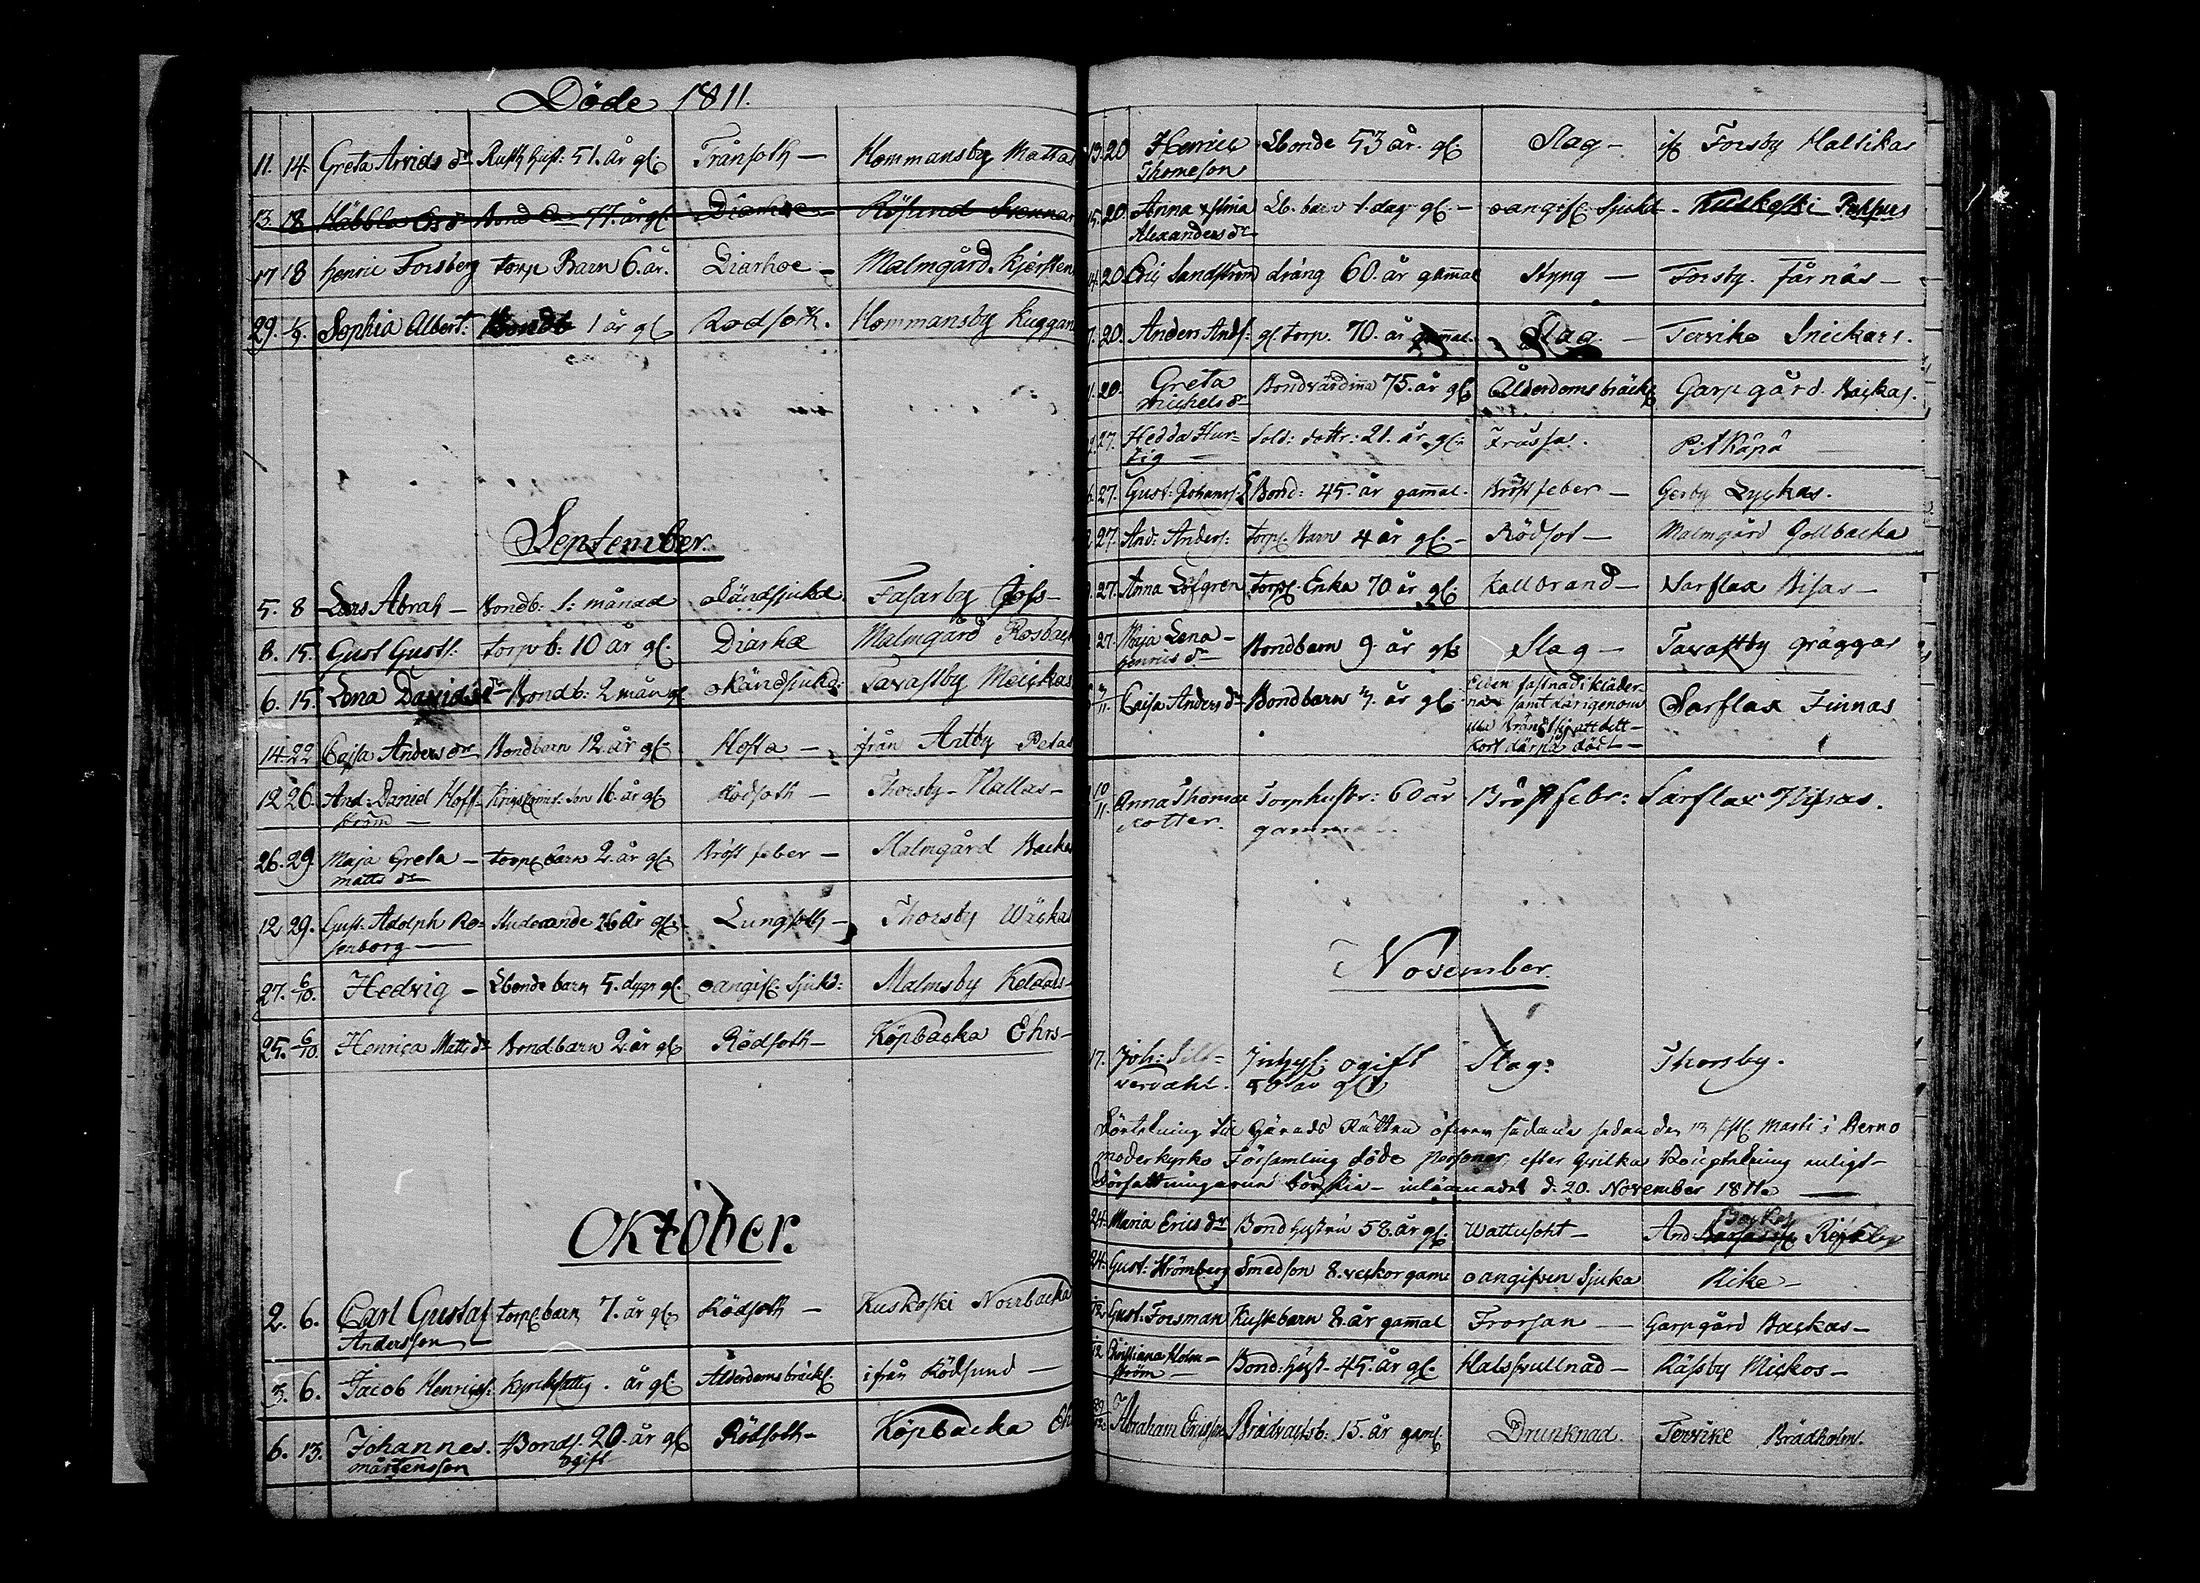 Döde 1811.
11. 14. Greta Arvids dr Rusth. hust: 51. år gl. Trånsoth — Hommansby Mattas
13. 18 77. år gl. Diarhoe — Rösund
17 18 henric Forsberg torp Barn 6. år. Diarhoe — Malmgård.
29. 1/9. Sophia Albert: Bondb 1 år gl Rödsoth. Hommansby Kuggan
September.
5. 8 Lars Abrah — Bondb: 1: månad okändsjukd. Fasarby Jofs—
8. 15. Gust Gusts: torpb: 10 år gl. Diarhæ Malmgård Rosback
6. 15. Lena Davids dr Bondb: 2 mån gl okändsjukd: Tavastby Meickas
14. 22 Cajsa Anders dr Bondbarn 12. år gl. Hosta — ifrån Antby Petas
12 26. And: Daniel Hoff-
ström — son 16. år gl. Rödsoth — Thorsby — Hallas —
26. 29. Maja Greta —
matts dr torp. barn 2. år gl. Bröst feber — Malmgård Backa
12 29. Gust: Adolph Ro-
senborg — Studerande 26 år gl. Lungsoth — Thorsby Wäckas
27. 6/10. Hedvig — Lbonde barn 5. dygn gl. oangif. Sjukd: Malmsby Keldars—
25. 6/10. Henrica Matts dr Bondbarn 2 år gl Rödsoth — Köpbacka Ehrs—
Oktober.
2. 6. Carl Gustaf
Andersson — torp. barn 7. år gl. Rödsoth — Kuskoski Norrbacka
3. 6. Jacob Henricss: Kyrkfattig . år gl. Alderdomsbräckl. ifrån Rödsund —
6. 13. Johannes.
mårtensson Bonds. 20. år gl
ogift Rödsoth — Köpbacka Eh
13. 20 Henric
Thomeson Lbonde 53 år. gl. Slag — if Forsby Haltikas
15. 20 Anna
Alexanders dr Lb. barn 1. dag gl. — oangif. Sjukd — Kuskoski
14. 20 Eric Sandström dräng 60. år gammal Styng — Forsby. Tårnäs —
20. Anders Ands: gl torp. 70. år gammal. Slag. — Tervike Snickars.
20. Greta
Michels dr Bondvärdinna 75. år gl. Ålderdomsbräckl Garpgård. Backas.
27. Hedda Hur-
tig Sold: dottr: 21. år. gl. Frossa. Pitkäpä —
27. Gust: Johanss: Bond: 45. år gammal. Bröst feber — Gerby Lyckas.
27. And: Anders: torp. Barn 4 år gl. — Rödsot — Malmgård Gollbacka
27. Anna Löfgren torp. Enka 70 år gl. Kallbrand — Sarflax Bisas —
27. Maja Lena —
henrics dr Bondbarn 9 år gl. Slag — Tavastby Gräggas
3/11. Cajsa Anders dr Bondbarn 3. år gl. Elden fastnad i kläder-
na samt därigenom
illa bränd
kort därpå död — Sarflax Finnas
10/11. Anna Thomas
dotter. Torphustr: 60 år
gammal. Bröstfebr: Sarflax
November.
17. Joh: Silf-
verdahl. Inhys. ogift
50 år gl. Slag: Thorsby.
Förtekning till Härads Rätten öfver sådane sedan den 13 sistl. Marti i Perno
moderkyrko Församling döde Personer, efter hvilka Bouptekning enligt
Författningarne bör ske — inlämnades d. 20. November 1811. —
24. Maria Erics dr Bond hustru 58. år gl. Wattusoht — And: Backas
24. Gust: Strömberg Smedson 8. veckor gam oangifven Sjuka Rike —
12 Gust: Forsman Kuskbarn 8. år gammal Frossan — Garpgård Backas —
12 Christiana Holm-
ström — Bond: hust. 45. år gl. Halssvullnad — Käfsby Mickos —
Abraham Ericsson 15. år gaml. Drunknad. Tervike Brädholm.